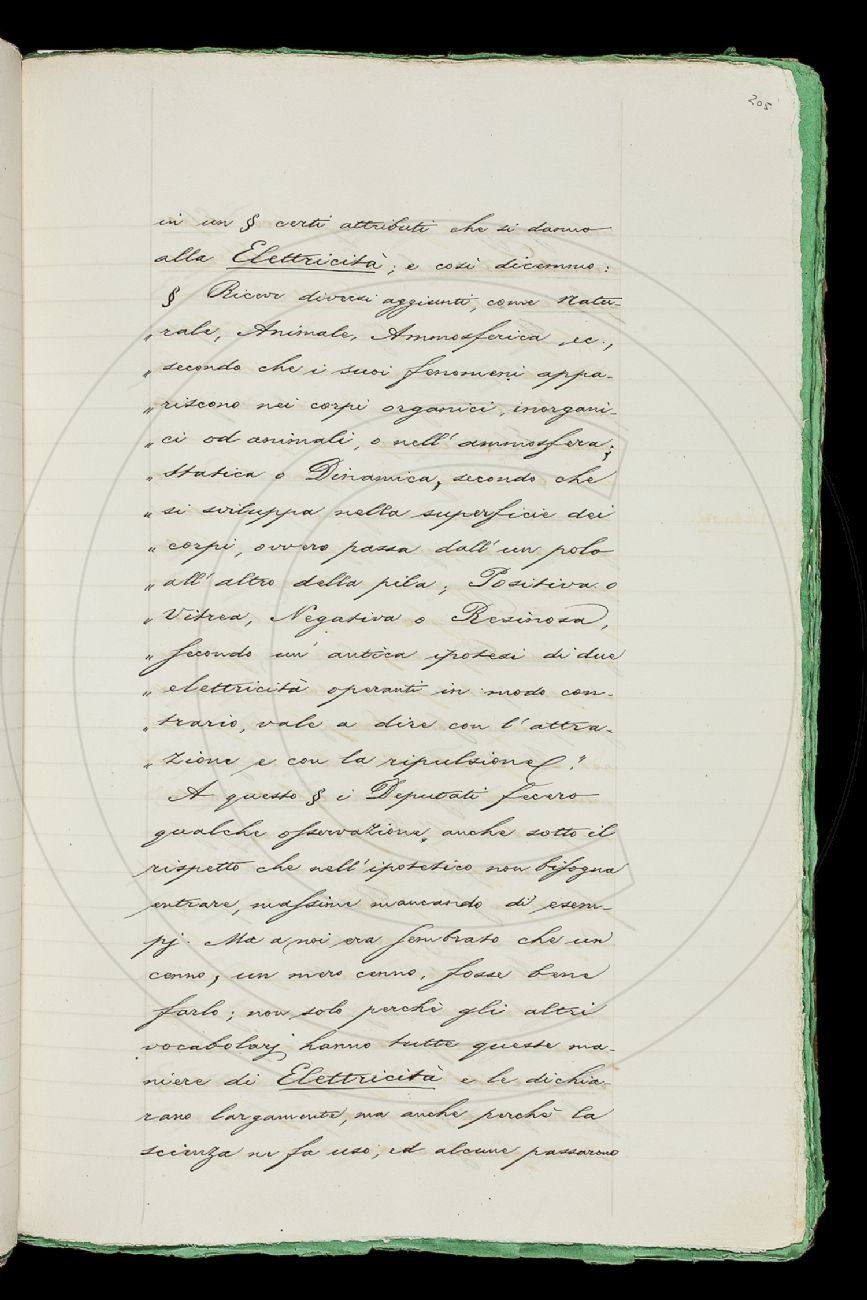 205
in un § certi attributi che si danno
alla Elettricità; e così dicemmo:
§ Riceve diversi aggiunti, come Natu-
„ rale, Animale, Ammosferica, ec.,
„ secondo che i suoi fenomeni appa-
„ riscono nei corpi organici, inorgani-
„ ci od animali, o nell'ammosfera;
„ Statica o Dinamica, secondo che
„ si sviluppa nella superficie dei
„ corpi, ovvero passa dall'un polo
„ all'altro della pila; Positiva o
„ Vitrea, Negativa o Resinosa,
„ secondo un'antica ipotesi di due
„ elettricità operanti in modo con-
„ trario, vale a dire con l'attra-
„ zione e con la ripulsione."
A questo § i Deputati fecero
qualche osservazione, anche sotto il
rispetto che nell'ipotetico non bisogna
entrare, massime mancando di esem-
pj. Ma a noi era sembrato che un
cenno, un mero cenno, fosse bene
farlo; non solo perchè gli altri
vocabolarj hanno tutte queste ma-
niere di Elettricità e le dichia-
rano largamente, ma anche perchè la
scienza ne fa uso, ed alcune passarono